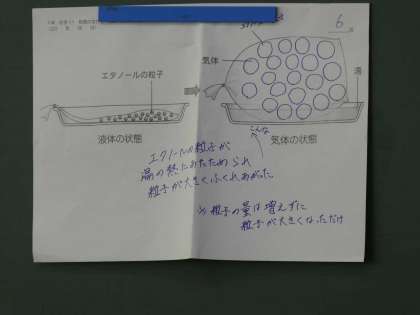 6
気体
エタノールの粒子
湯
液体の状態
気体の状態
こんな
エタノールの粒子が
湯の熱にあたためられ
粒子が大きくふくれあがった
粒子の量は増えずに
粒子が大きくなっただけ